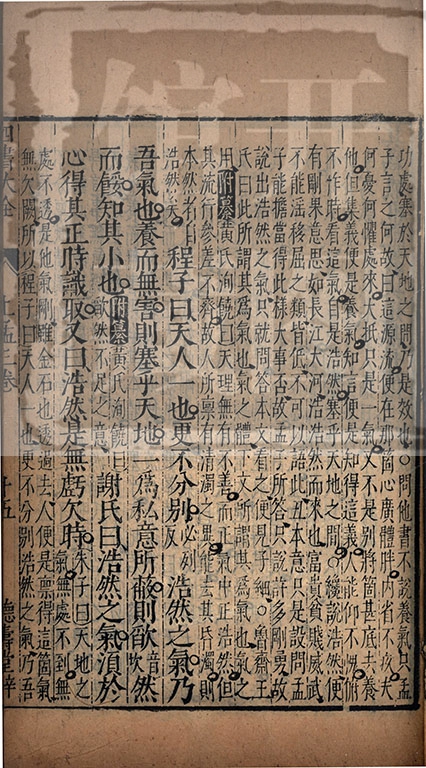 功處塞於天地之間乃是效也○問他書不說養氣只孟
子言之何故曰這源流便在那箇心廣體胖內省不疚夫
何憂何懼處來大抵只是一氣又不是別將箇甚底去養
他但集義便是養氣知言便是知得這義人能仰不愧俯
不怍時看這氣自是浩然塞乎天地之間○纔說浩然便
有剛果意思如長江大河浩浩然而來也富貴貧賤威武
不能淫移屈之類皆低不可以語此丑本意只是設問孟
子能擔當得此樣大事否故孟子所答只說許多剛勇故
說出浩然之氣只就問答本文看之便見子細○魯齋王
氏曰此所謂其為氣也氣之體下文所謂其為氣也氣之
用附纂黃氏洵饒曰天理無有不善而正氣中正浩然但
其流行參差不齊故人所稟有清濁之異能去其昏濁則
本然者自
浩然矣
程子曰天人一也更不分別必列反浩然之氣乃
吾氣也養而無害則塞乎天地一為私意所蔽則欿音坎然
而餒知其小也欿然不足之意附纂黃氏洵饒曰謝氏曰浩然之氣須於
心得其正時識取又曰浩然是無虧欠時朱子曰天地之氣無處不到無
處不透是他氣剛雖金石也透過去人便是稟得這箇氣
無欠闕所以程子曰天人一也更不分別浩然之氣乃吾
四書大全
上孟三卷
十五
德壽堂梓